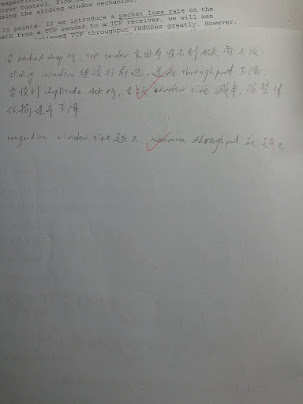 error control, flow
being the sliding window mechanism.
10 points. If we introduce a packet loss rate on the
path from a TCP sender to a TCP receiver, we will see
TCP throughput reduces greatly. However,
packed drop 時, TCP sender 會因為收不到 Ack, 而
window 繼續往前進, throughput 下降
會收到 duplicate Ack 時, window size 減半,
傳輸速率下降
congestion window size 越大, maximum throughput 就越大